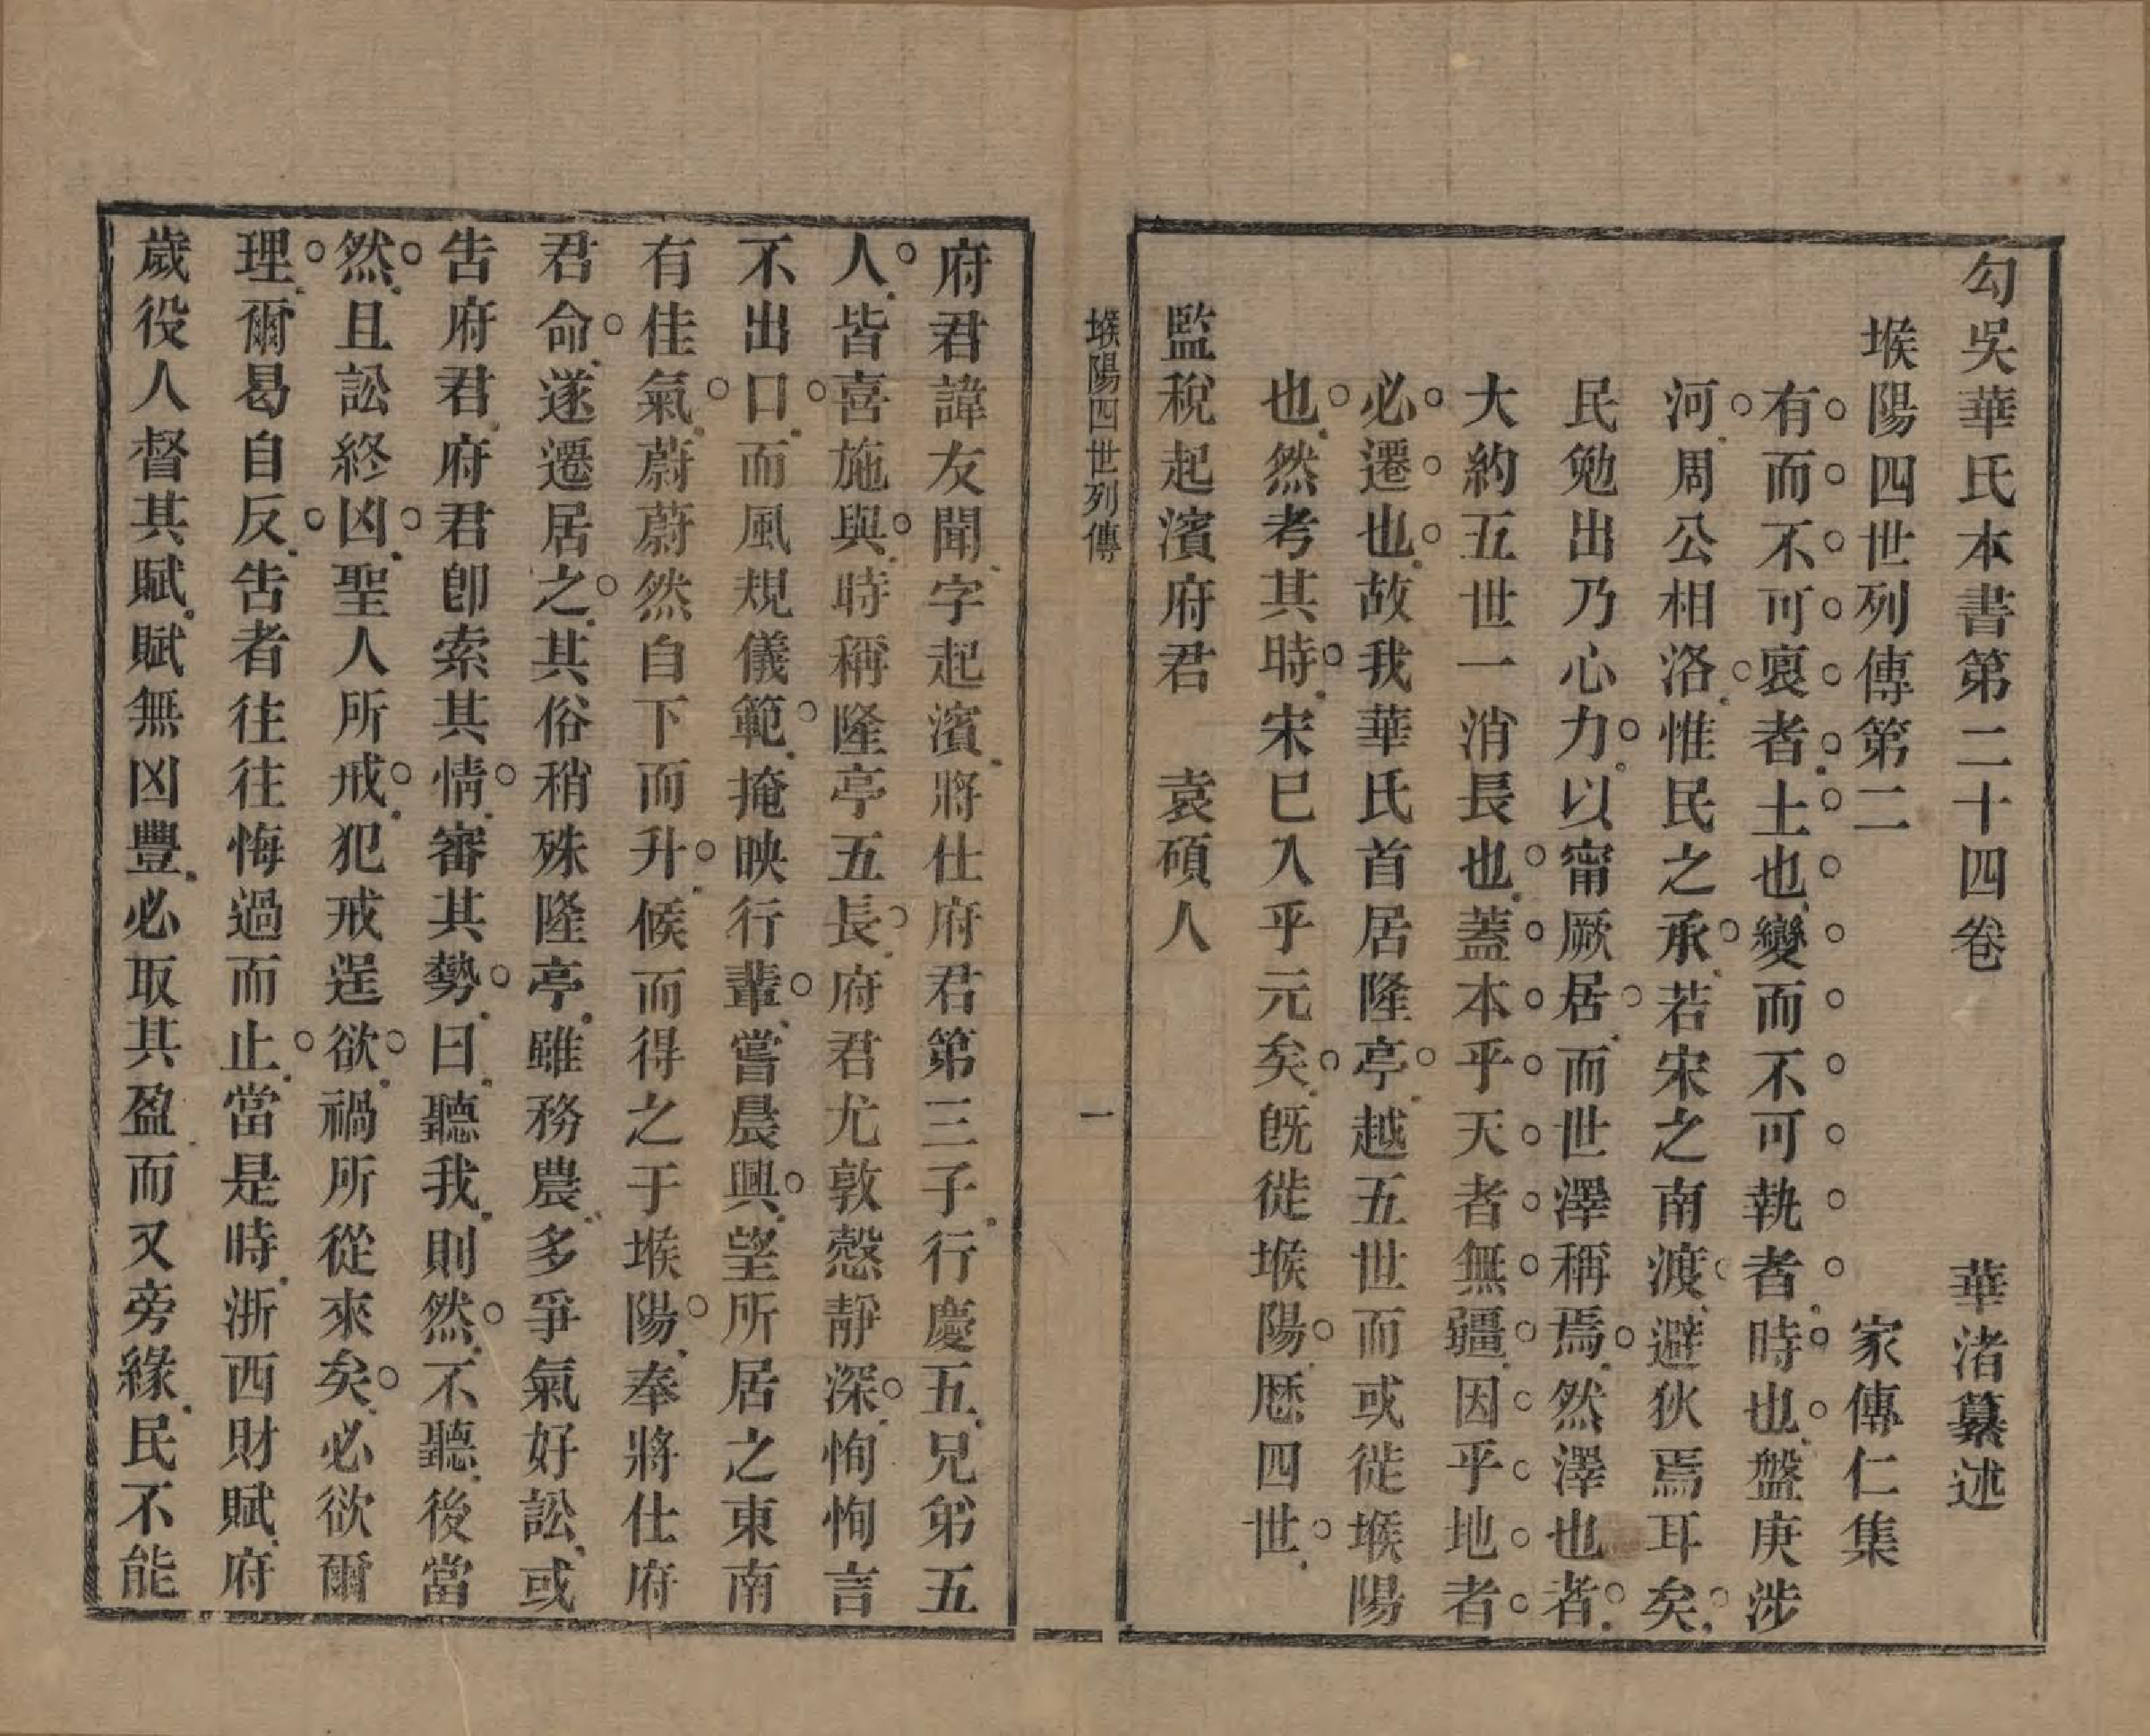 勾吳華氏本書第二十四卷　華渚纂述
堠陽四世列傳第二　家傳仁集
有而不可裒者士也變而不可執者時也盤庚涉
河周公相洛惟民之承若宋之南渡避狄焉耳矣
民勉出乃心力以甯厥居而世澤稱焉然澤也者
大約五世一消長也蓋本乎天者無疆因乎地者
必遷也故我華氏首居隆亭越五世而或徙堠陽
也然考其時宋巳入乎元矣旣徙堠陽歷四世
監稅起濱府君　袁碩人
堠陽四世列傳　一
府君諱友聞字起濱將仕府君第三子行慶五兄弟五
人皆喜施與時稱隆亭五長府君尤敦慤靜深恂恂言
不出口而風規儀範掩映行輩嘗晨興望所居之東南
有佳氣蔚蔚然自下而升候而得之于堠陽奉將仕府
君命遂遷居之其俗稍殊隆亭雖務農多爭氣好訟或
告府君府君卽索其情審其勢曰聽我則然不聽後當
然且訟終凶聖人所戒犯戒逞欲禍所從來矣必欲爾
理爾曷自反告者往往悔過而止當是時浙西財賦府
歲役人督其賦賦無凶豐必取其盈而又旁緣民不能